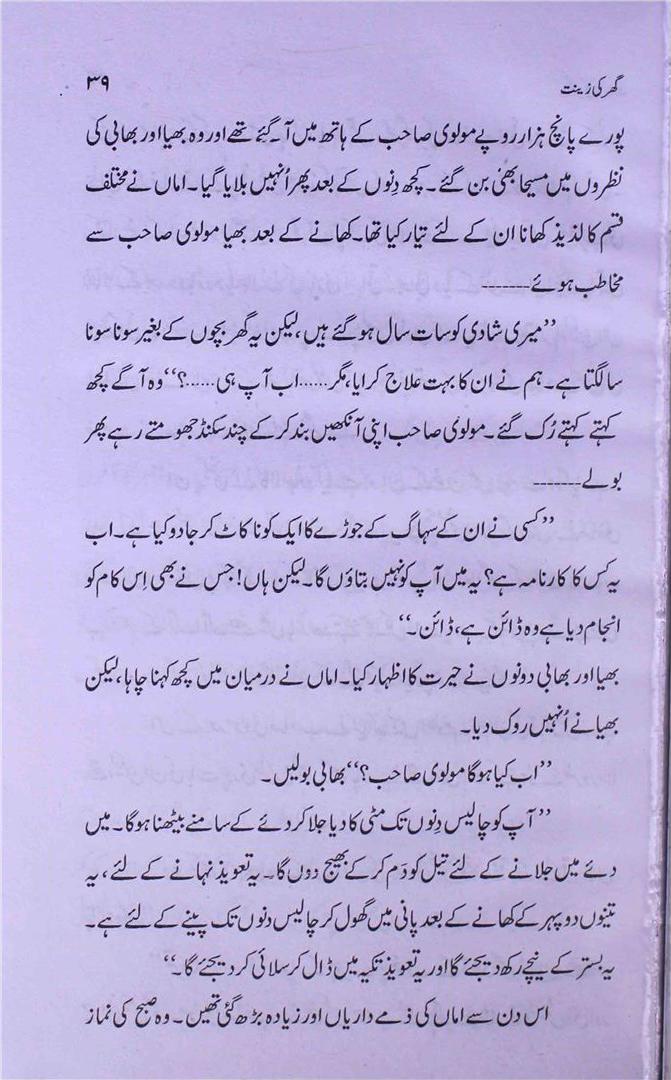 گھر کی زینت ۳۹
پورے پانچ ہزار روپے مولوی صاحب کے ہاتھ میں آ گئے تھے اور وہ بھیا اور بھابی کی
نظروں میں مسیحا بھی بن گئے۔ کچھ دِنوں کے بعد پھر اُنہیں بلایا گیا۔ اماں نے مختلف
قسم کا لذیذ کھانا ان کے لئے تیار کیا تھا۔ کھانے کے بعد بھیا مولوی صاحب سے
مخاطب ہوئے-------
’’میری شادی کو سات سال ہو گئے ہیں، لیکن یہ گھر بچوں کے بغیر سونا سونا
سا لگتا ہے۔ ہم نے ان کا بہت علاج کرایا، مگر......اب آپ ہی......؟‘‘ وہ آگے کچھ
کہتے کہتے رُک گئے۔ مولوی صاحب اپنی آنکھیں بند کر کے چند سکنڈ جھومتے رہے پھر
بولے-------
’’کسی نے ان کے سہاگ کے جوڑے کا ایک کونا کاٹ کر جادو کیا ہے۔ اب
یہ کس کا کارنامہ ہے؟ یہ میں آپ کو نہیں بتاؤں گا۔ لیکن ہاں! جس نے بھی اِس کام کو
انجام دیا ہے وہ ڈائن ہے، ڈائن۔‘‘
بھیا اور بھابی دونوں نے حیرت کا اظہار کیا۔ اماں نے درمیان میں کچھ کہنا چاہا، لیکن
بھیا نے اُنہیں روک دیا۔
’’اب کیا ہوگا مولوی صاحب؟‘‘ بھابی بولیں۔
’’آپ کو چالیس دِنوں تک مٹی کا دیا جلا کر دئے کے سامنے بیٹھنا ہوگا۔ میں
دئے میں جلانے کے لئے تیل کو دَم کر کے بھیج دوں گا۔ یہ تعویذ نہانے کے لئے، یہ
تینوں دوپہر کے کھانے کے بعد پانی میں گھول کر چالیس دنوں تک پینے کے لئے ہے۔
یہ بستر کے نیچے رکھ دیجئے گا اور یہ تعویذ تکیہ میں ڈال کر سلائی کر دیجئے گا۔‘‘
اس دن سے اماں کی ذمے داریاں اور زیادہ بڑھ گئی تھیں۔ وہ صبح کی نماز